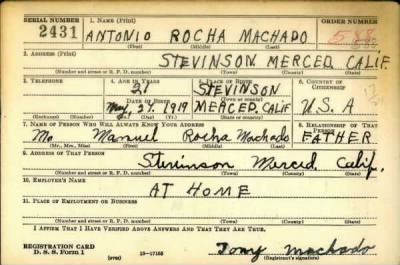 SERIAL NUMBER 1. NAME (Print) ORDER NUMBER
2431 ANTONIO ROCHA MACHADO 588
(First) (Middle) (Last)
2. ADDRESS (Print)
STEVINSON MERCED CALIF.
(Number and street or R. F. D. number) (Town) (County) (State)
3. TELEPHONE 4. AGE IN YEARS 5. PLACE OF BIRTH 6. COUNTRY OF CITIZENSHIP
21 STEVINSON
DATE OF BIRTH (Town or county)
May 27, 1919 MERCED, CALIF U.S.A
(Exchange) (Number) (Mo.) (Day) (Yr.) (State or country)
7. NAME OF PERSON WHO WILL ALWAYS KNOW YOUR ADDRESS 8. RELATIONSHIP OF THAT PERSON
Mr. Manuel Rocha Machado FATHER
(Mr., Mrs., Miss) (First) (Middle) (Last)
9. ADDRESS OF THAT PERSON
Stevinson Merced Calif.
(Number and street or R. F. D. number) (Town) (County) (State)
10. EMPLOYER'S NAME
AT HOME
11. PLACE OF EMPLOYMENT OR BUSINESS
(Number and street or R. F. D. number) (Town) (County) (State)
I AFFIRM THAT I HAVE VERIFIED ABOVE ANSWERS AND THAT THEY ARE TRUE.
REGISTRATION CARD
D. S. S. Form 1 (over) Tony Machado
(Registrant's signature)